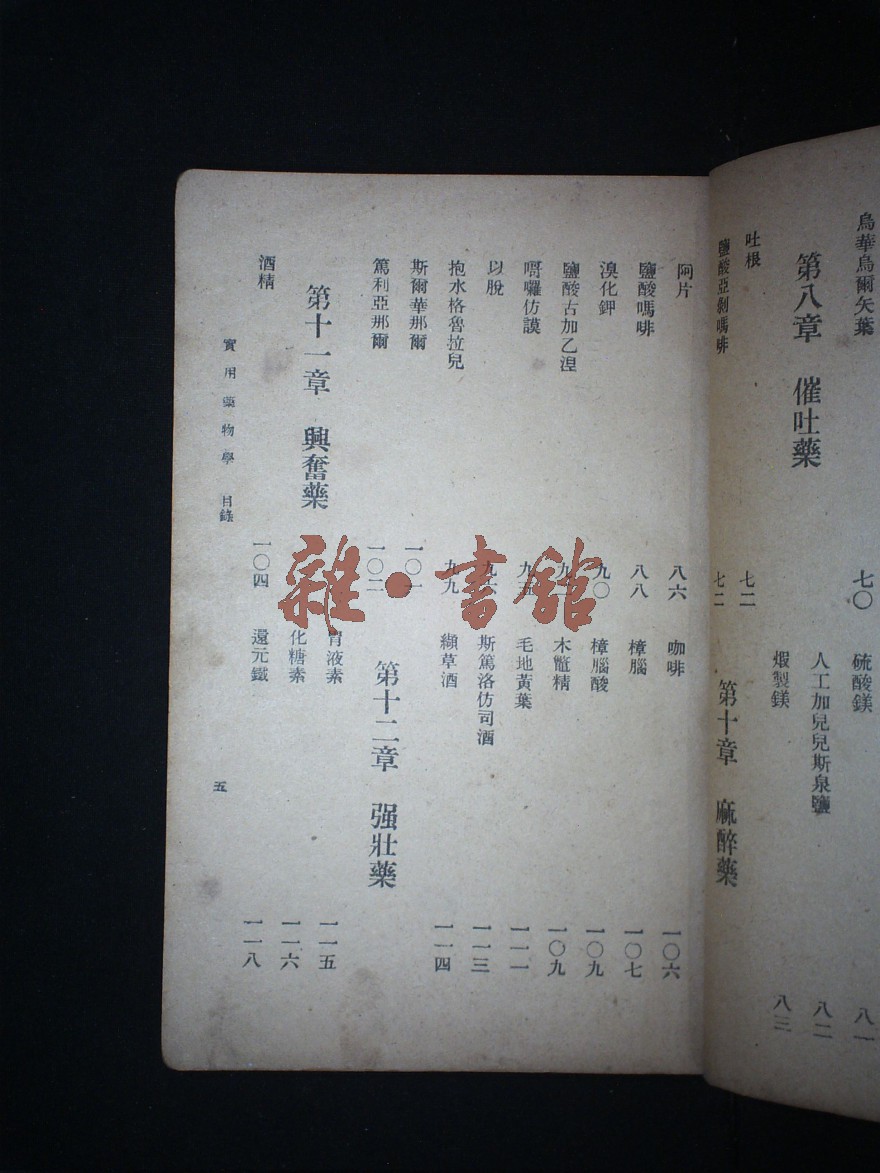 烏華烏爾矢葉 七〇
第八章 催吐藥
吐根 七二
鹽酸亞剝嗎啡 七二
硫酸鎂 八一
人工加兒兒斯泉鹽 八二
煆製鎂 八三
第十章 麻醉藥
阿片 八六
鹽酸嗎啡 八八
溴化鉀 九〇
鹽酸古加乙涅
哥囉仿謨 九五
以脫 九六
抱水格魯拉兒 九九
斯爾華那爾 一〇一
篤利亞那爾 一〇二
第十一章 興奮藥
酒精 一〇四
咖啡 一〇六
樟腦 一〇七
樟腦酸 一〇九
木鼈精 一〇九
毛地黃葉 一一一
斯篤洛仿司酒 一一三
纈草酒 一一四
第十二章 强壯藥
胃液素 一一五
化糖素 一一六
還元鐵 一一八
實用藥物學 目錄
五
雜·書館